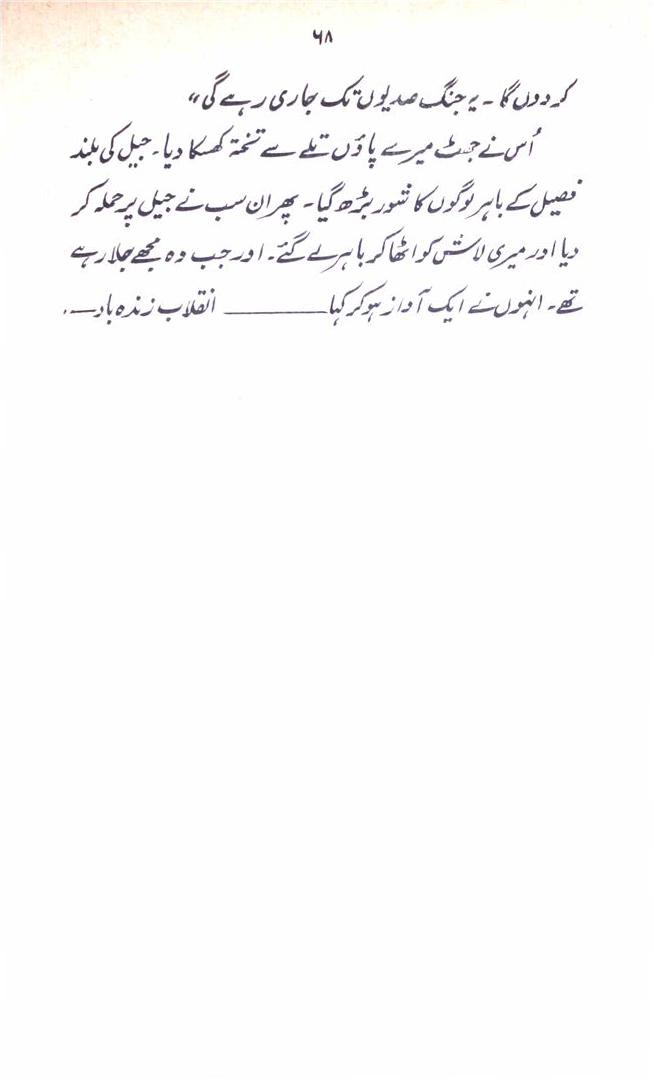 ۶۸
کر دوں گا ۔ یہ جنگ صدیوں تک جاری رہے گی “
اُس نے جھٹ میرے پاؤں تلے سے تختہ کھسکا دیا۔ جیل کی بلند
فصیل کے باہر لوگوں کا شور بڑھ گیا۔ پھر ان سب نے جیل پر حملہ کر
دیا اور میری لاش کو اٹھا کر باہر لے گئے۔ اور جب وہ مجھے جلا رہے
تھے۔ انہوں نے ایک آواز ہو کر کہا ________ انقلاب زندہ باد —.